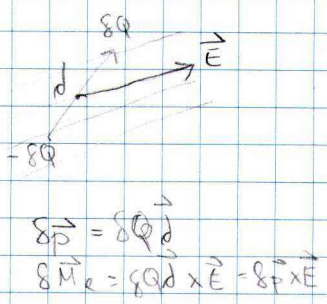 δQ
E⃗
d
-δQ
δp⃗ = δQd⃗
δM⃗e = δQd⃗ × E⃗ = δp⃗ × E⃗